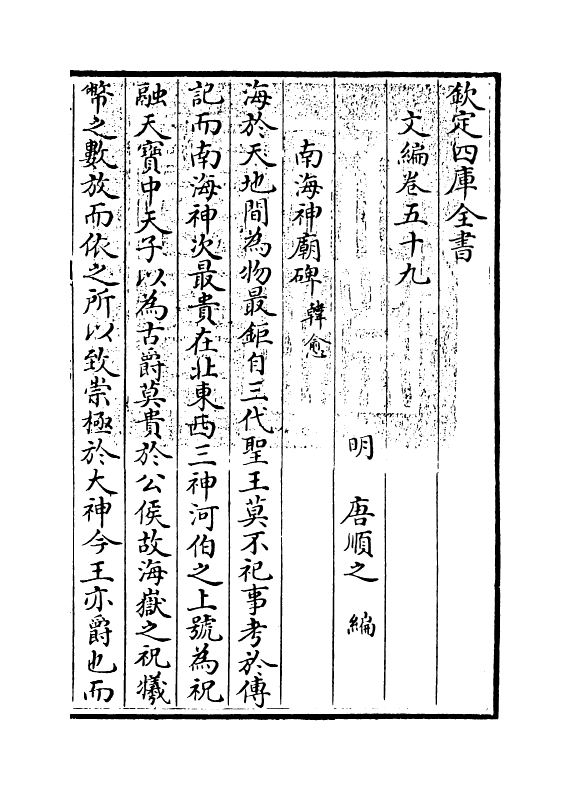 欽定四庫全書
文編卷五十九
明 唐順之 編
南海神廟碑韓愈
海於天地間為物最鉅自三代聖王莫不祀事考於傳
記而南海神次最貴在北東西三神河伯之上號為祝
融天寶中天子以為古爵莫貴於公侯故海嶽之祝犧
幣之數放而依之所以致崇極於大神今王亦爵也而